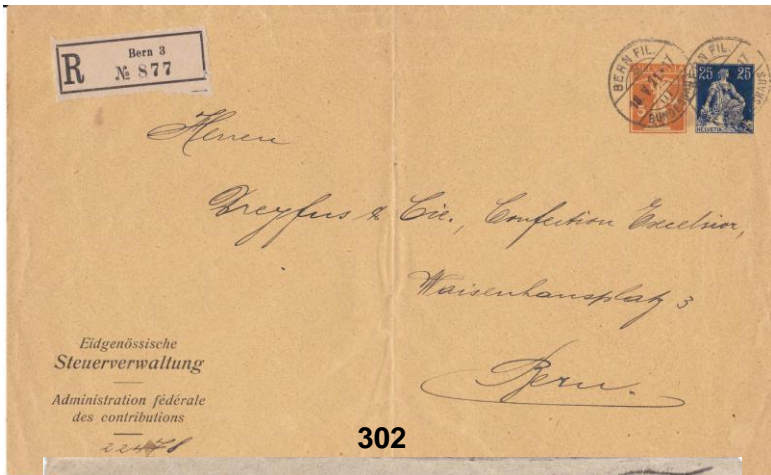 Bern 3
R № 877
BERN FIL.
BERN FIL.
25 25
HELVETIA
Herren
Dreyfus & Cie., Confection Excelsior,
Waisenhausplatz 3
Bern.
Eidgenössische
Steuerverwaltung
Administration fédérale
des contributions
302